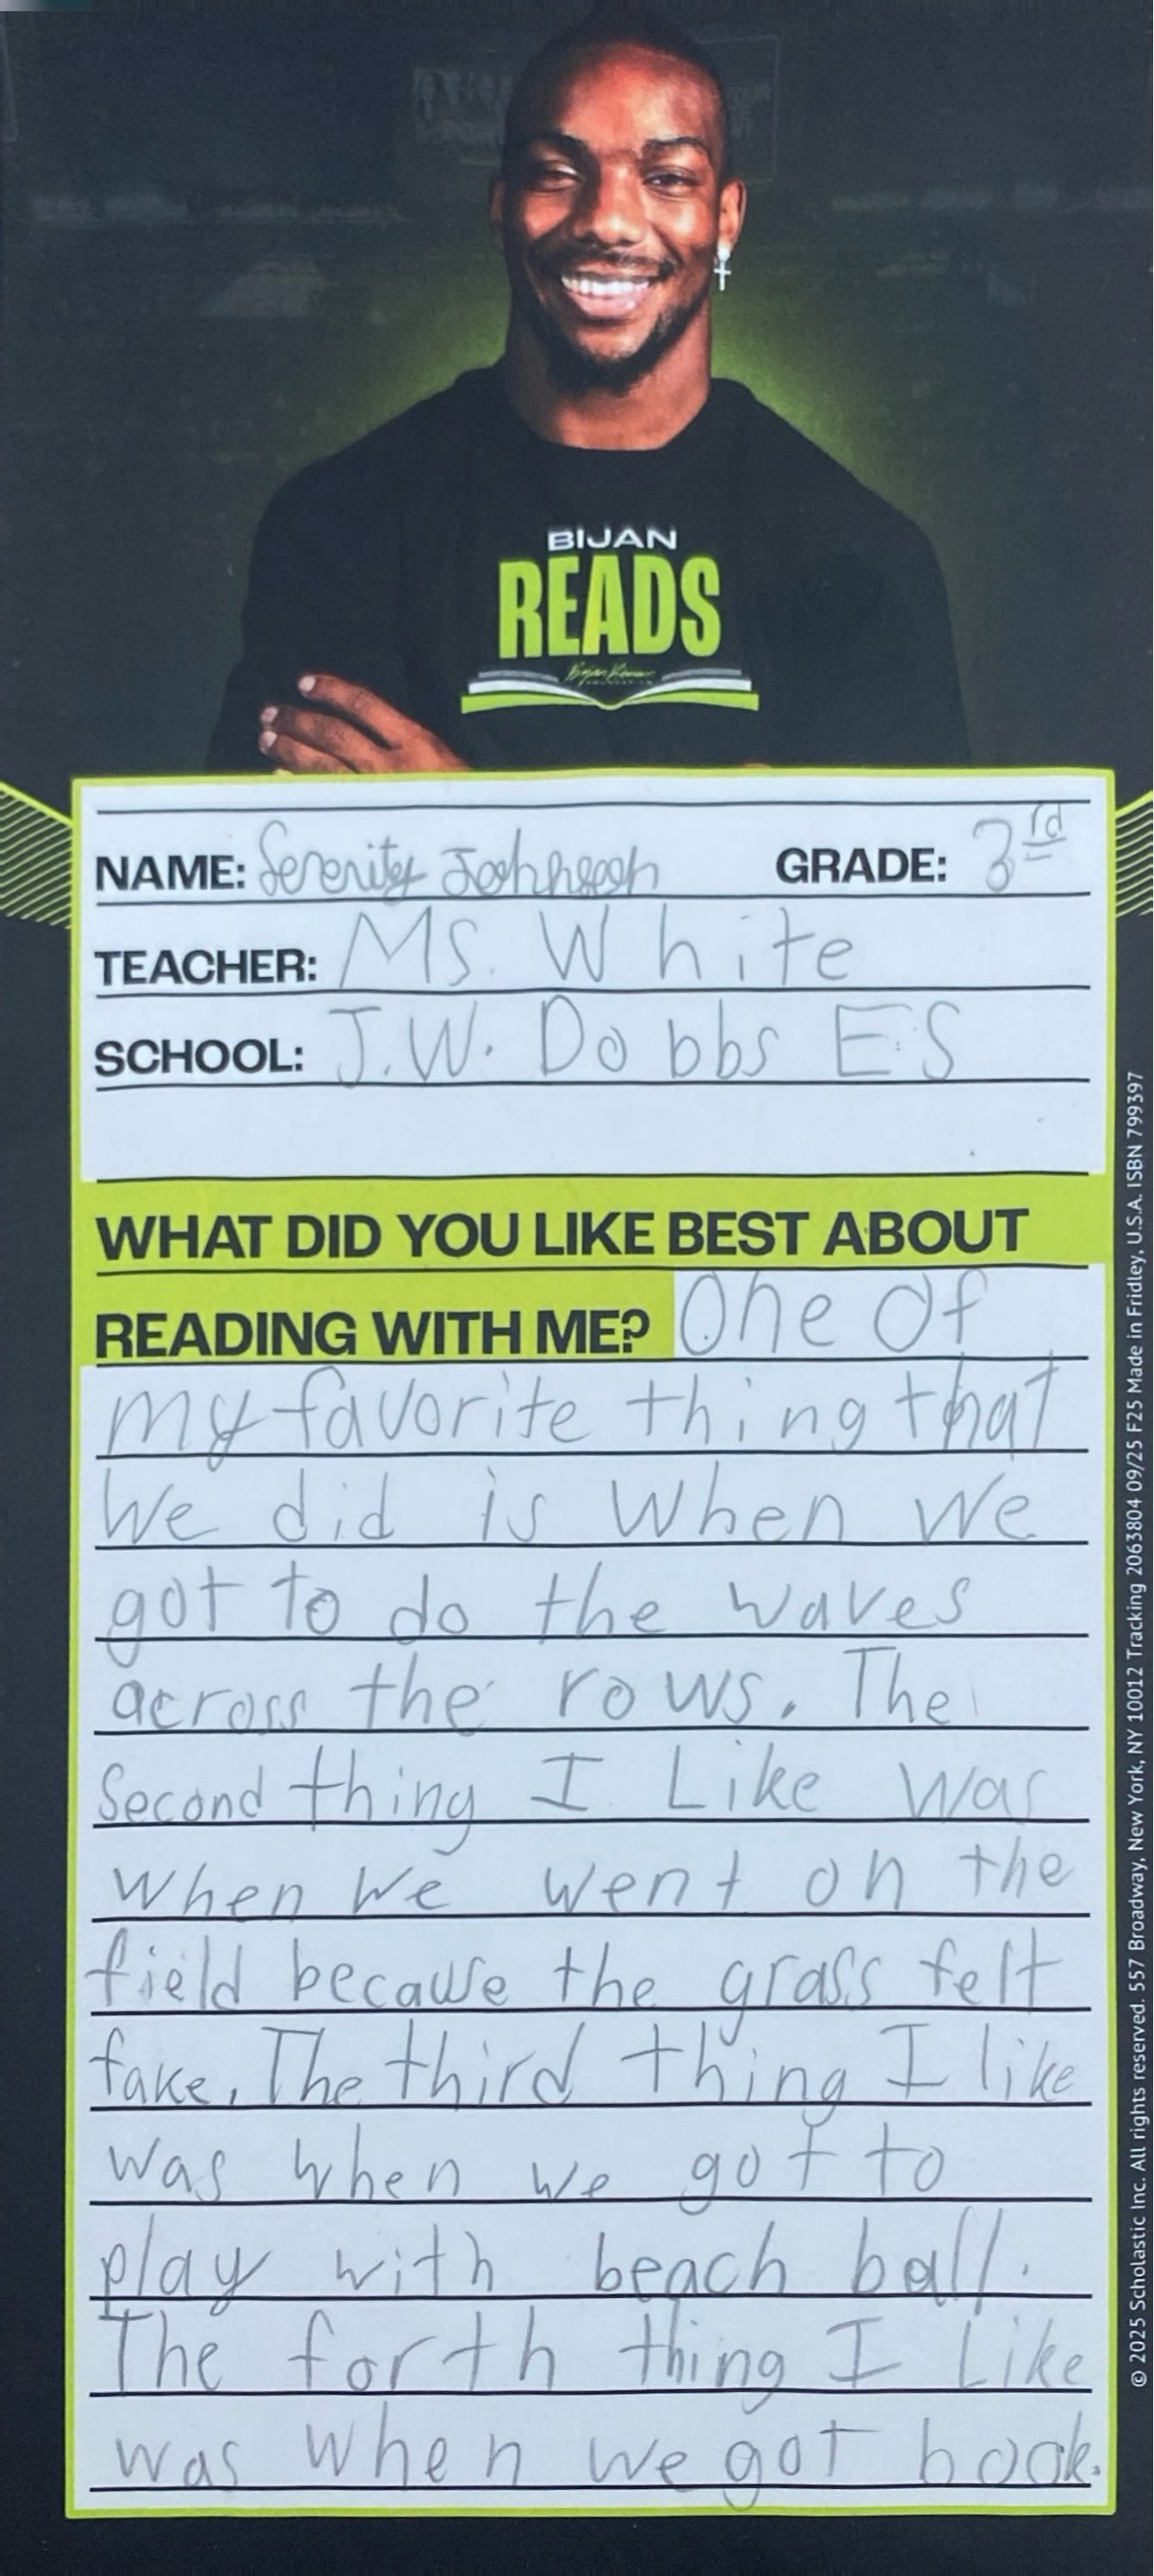 BIJAN
READS
NAME: Serenity Johnson GRADE: 3rd
TEACHER: Ms. White
SCHOOL: J.W. Dobbs E.S
WHAT DID YOU LIKE BEST ABOUT
READING WITH ME? One Of
my favorite thing that
We did is When We
got to do the waves
across the rows. The
Second thing I Like was
when We went on the
field because the grass felt
fake. The third thing I like
was when we got to
play with beach ball.
The forth thing I Like
was when we got book.
© 2025 Scholastic Inc. All rights reserved. 557 Broadway, New York, NY 10012 Tracking 2063804 09/25 F25 Made in Fridley, U.S.A. ISBN 799397